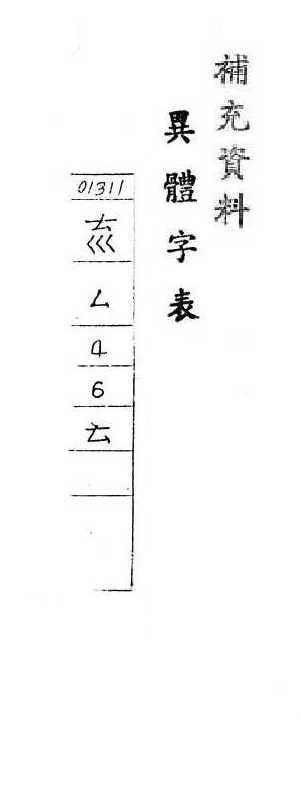 補充資料
異體字表
01311
厶
4
6